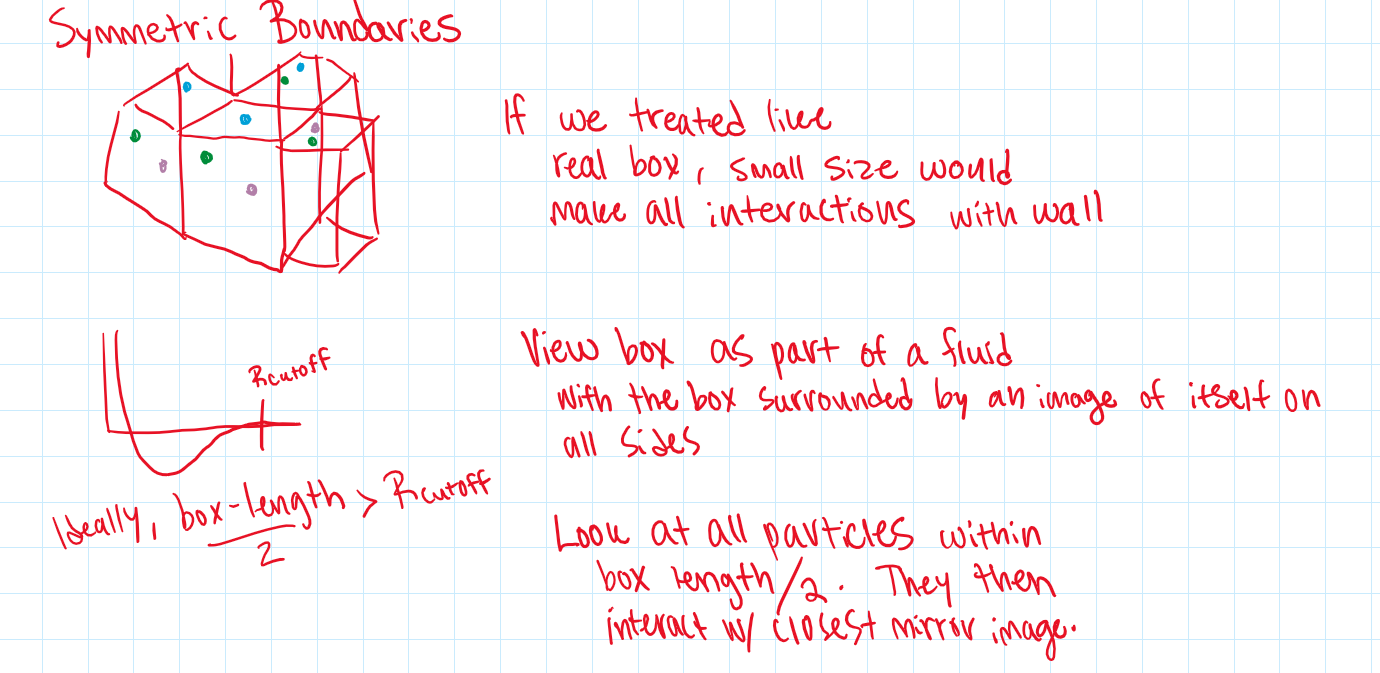 Symmetric Boundaries
If we treated like
real box, small size would
make all interactions with wall
Rcutoff
Ideally, box-length/2 > Rcutoff
View box as part of a fluid
with the box surrounded by an image of itself on
all sides
Look at all particles within
box length/2. They then
interact w/ closest mirror image.